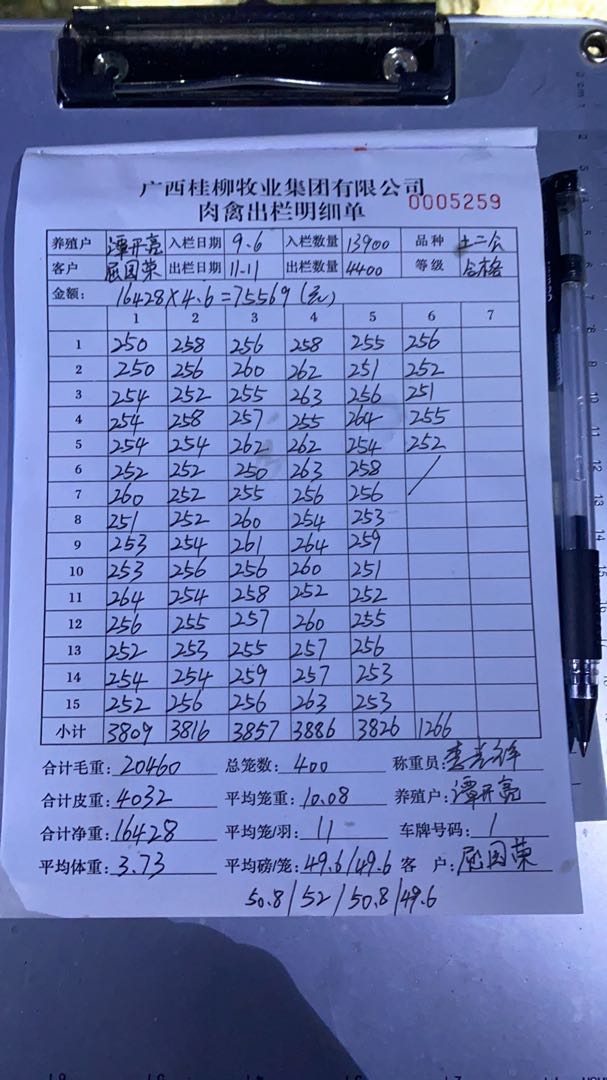 广西桂柳牧业集团有限公司
肉禽出栏明细单 0005259
养殖户 谭开亮 入栏日期 9.6 入栏数量 13900 品种 土二公
客户 屈国荣 出栏日期 11-11 出栏数量 4400 等级 合格
金额: 16428×4.6=75569(元)
1 2 3 4 5 6 7
1 250 258 256 258 255 256
2 250 256 260 262 251 252
3 254 252 255 263 256 251
4 254 258 257 255 264 255
5 254 254 262 262 254 252
6 252 252 250 263 258
7 260 252 255 256 256
8 251 252 260 254 253
9 253 254 261 264 259
10 253 256 256 260 251
11 264 254 258 252 252
12 256 255 257 260 255
13 252 253 255 257 256
14 254 254 259 257 253
15 252 256 256 263 253
小计 3809 3816 3857 3886 3826 1266
合计毛重: 20460 总笼数: 400 称重员:
合计皮重: 4032 平均笼重: 10.08 养殖户: 谭开亮
合计净重: 16428 平均笼/羽: 11 车牌号码: 1
平均体重: 3.73 平均磅/笼: 49.6/49.6 客 户: 屈国荣
50.8/52/50.8/49.6